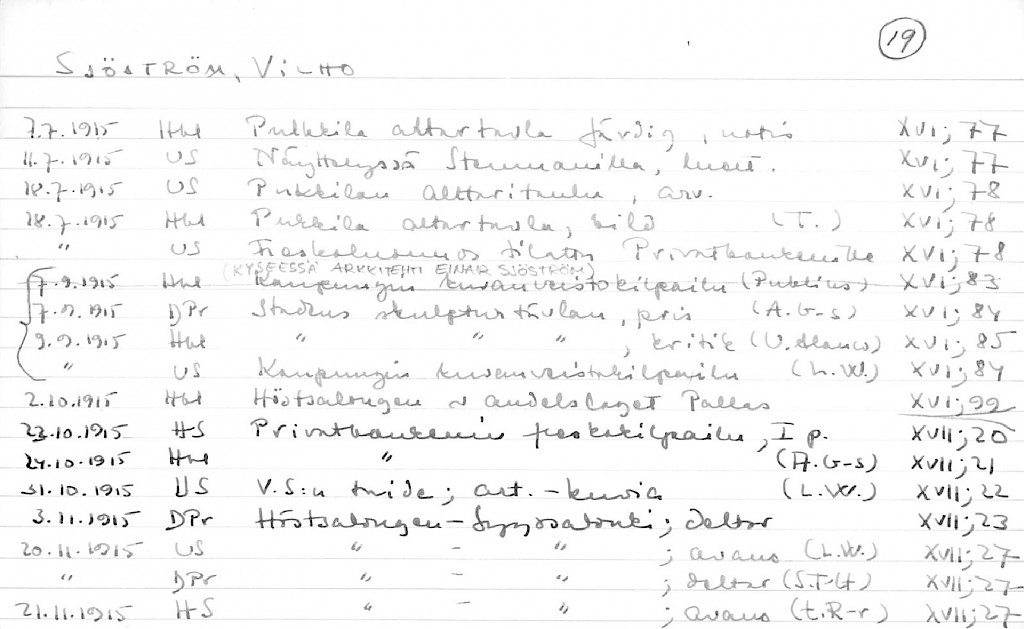 19
SJÖSTRÖM, VILHO
7.7.1915 Hbl Pukkila altartavla färdig, notis XVI; 77
11.7.1915 US Näyttelyssä Stenmanilla, luett. XVI; 77
18.7.1915 US Pukkilan alttaritaulu, arv. XVI; 78
28.7.1915 Hbl Pukkila altartavla, bild (T.) XVI; 78
" US Freskoluonnos tilattu Privatbankenille XVI; 78
(KYSEESSÄ ARKKITEHTI EINAR SJÖSTRÖM)
7.9.1915 Hbl Kaupungin kuvanveistokilpailu (Publius) XVI; 83
7.9.1915 DPr Stadens skulpturtävlan, pris (A.G-s) XVI; 84
9.9.1915 Hbl " " " , kritik (U.Alanco) XVI; 85
" US Kaupungin kuvanveistokilpailu (L.W.) XVI; 84
2.10.1915 Hbl Höstsalongen o andelslaget Pallas XVI; 99
23.10.1915 HS Privatbankenin freskokilpailu, I p. XVII; 20
24.10.1915 Hbl " (A.G-s) XVII; 21
31.10.1915 US V.S:n taide; art.-kuvia (L.W.) XVII; 22
3.11.1915 DPr Höstsalongen-Syyssalonki; deltar XVII; 23
20.11.1915 US " - " ; arvans (L.W.) XVII; 27
" DPr " - " ; deltar (S.T-lt) XVII; 27
21.11.1915 HS " - " ; arvans (t.R-r) XVII; 27